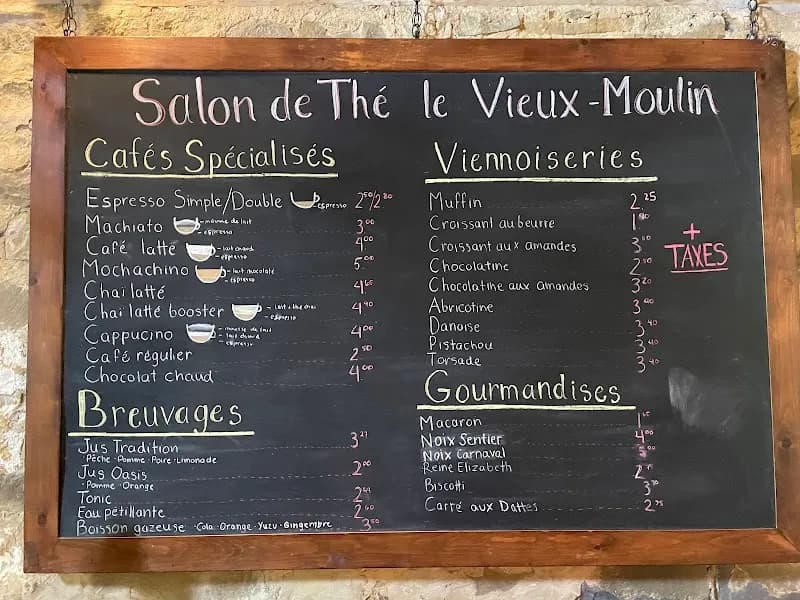 Salon de Thé le Vieux-Moulin
Cafés Spécialisés
Espresso Simple/Double espresso 2.50/2.80
Machiato mousse de lait espresso 3.00
Café latté lait chaud espresso 4.00
Mochachino lait chocolaté espresso 5.00
Chai latté
Chai latté booster espresso 4.40
Cappucino mousse de lait lait chaud espresso 4.00
Café régulier 2.50
Chocolat chaud 4.00
Breuvages
Jus Tradition 3.27
Pêche - Pomme - Poire - Limonade
Jus Oasis 2.00
- Pomme - Orange
Tonic
Eau pétillante 2.60
Boisson gazeuse - Cola - Orange - Yuzu - Gingembre 3.50
Viennoiseries
Muffin 2.25
Croissant au beurre
Croissant aux amandes
Chocolatine
Chocolatine aux amandes 3.80
Abricotine
Danoise 3.40
Pistachou 3.40
Torsade 3.40
+
TAXES
Gourmandises
Macaron
Noix Sentier 4.00
Noix Carnaval 5.00
Reine Elizabeth
Biscotti
Carré aux Dattes 2.75